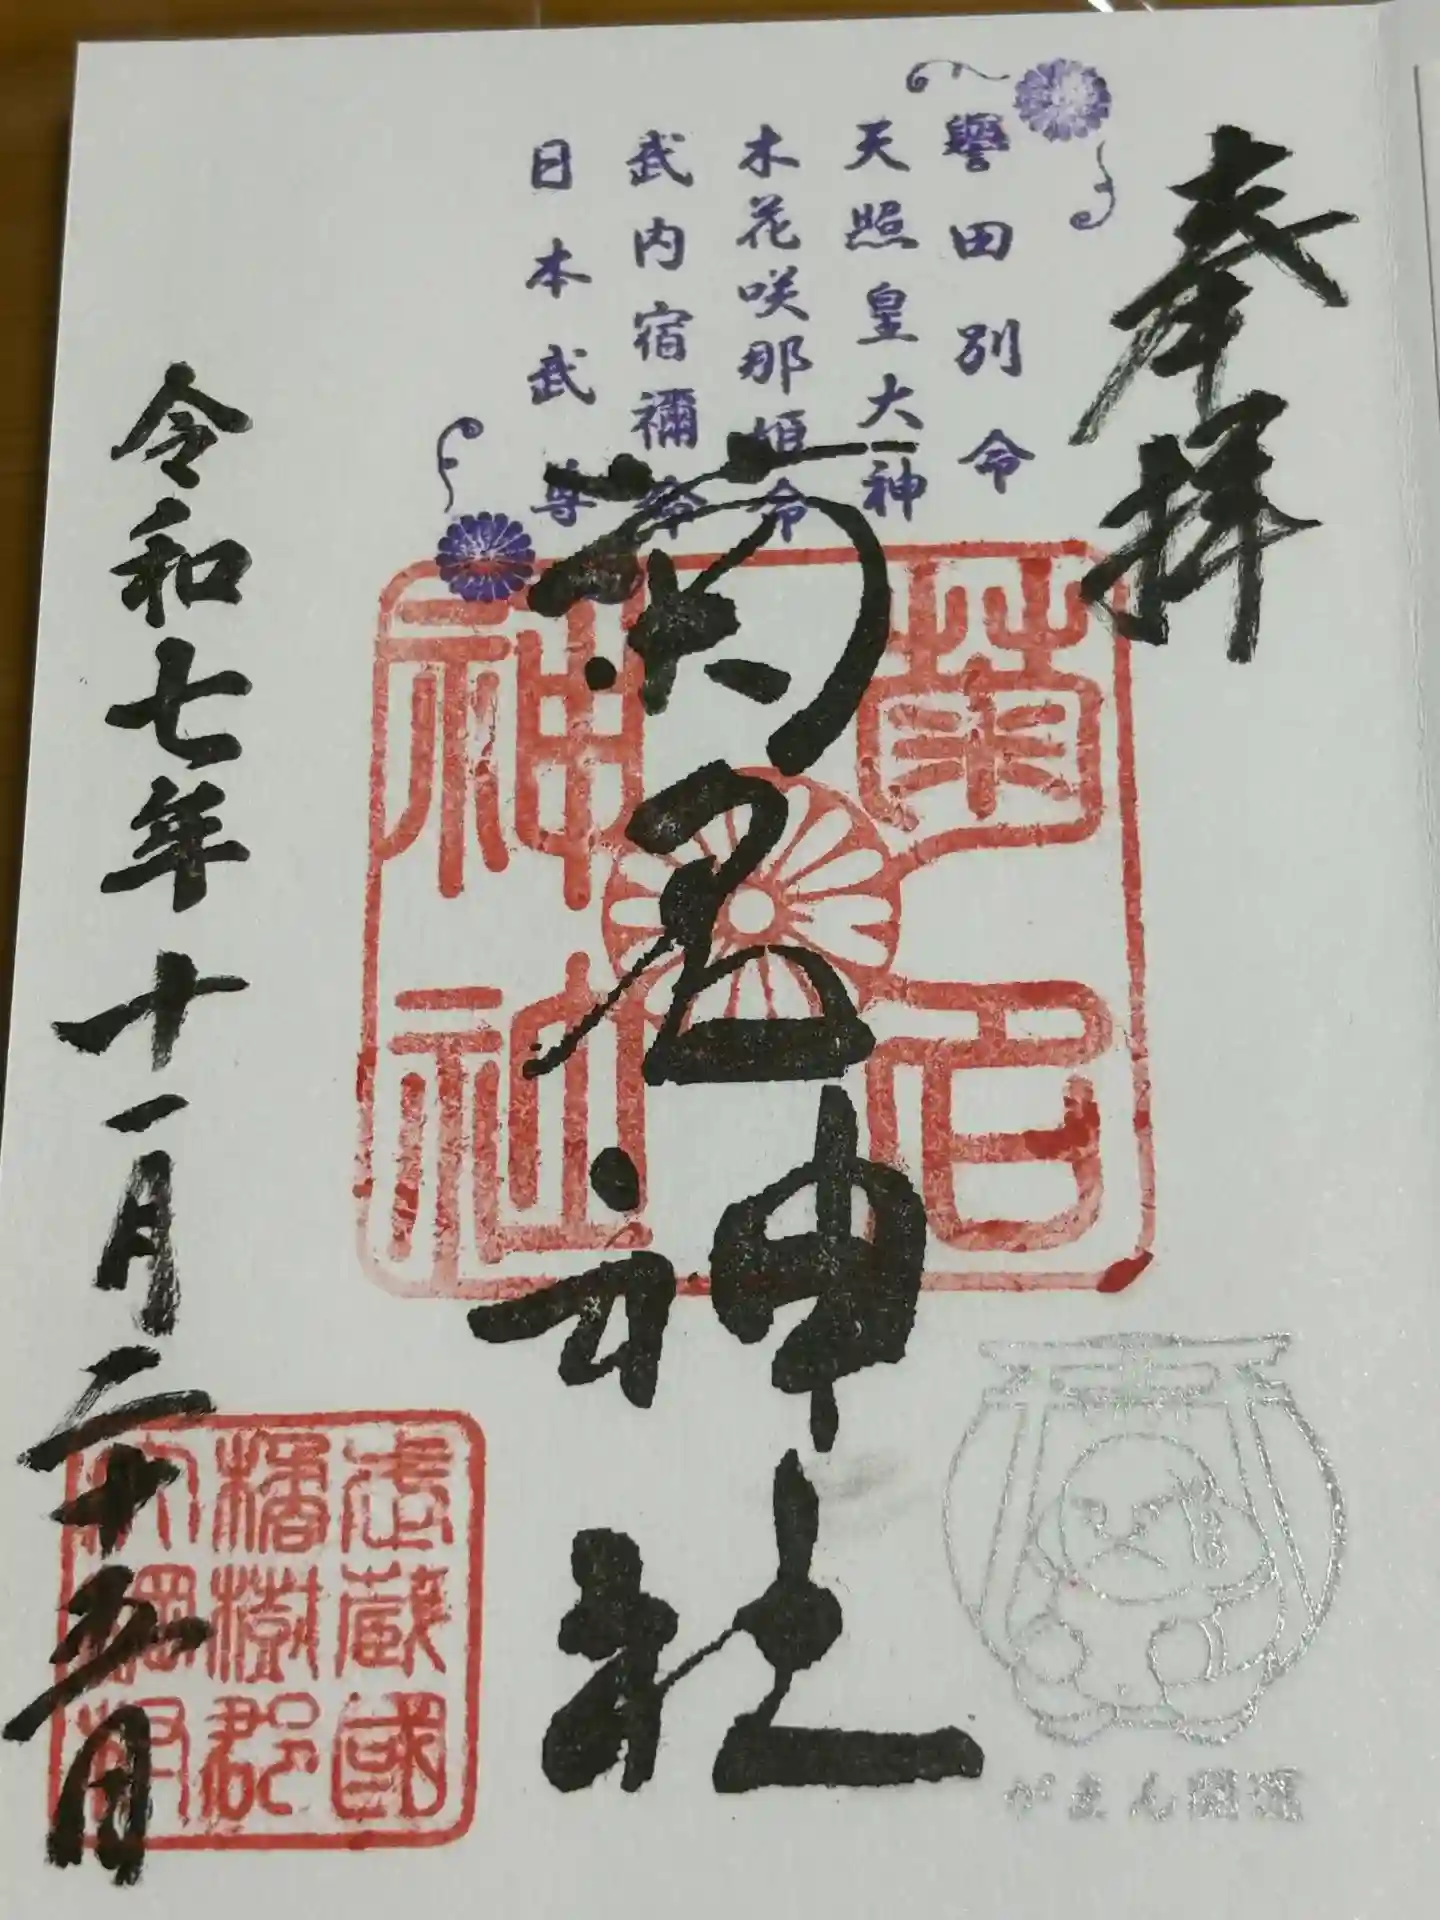 奉拝
譽田別命
天照皇大神
木花咲那姫命
武内宿禰命
日本武尊
菊名神社
菊名
神社
令和七年十一月二十五日
武蔵國
橘樹郡
がまん開運